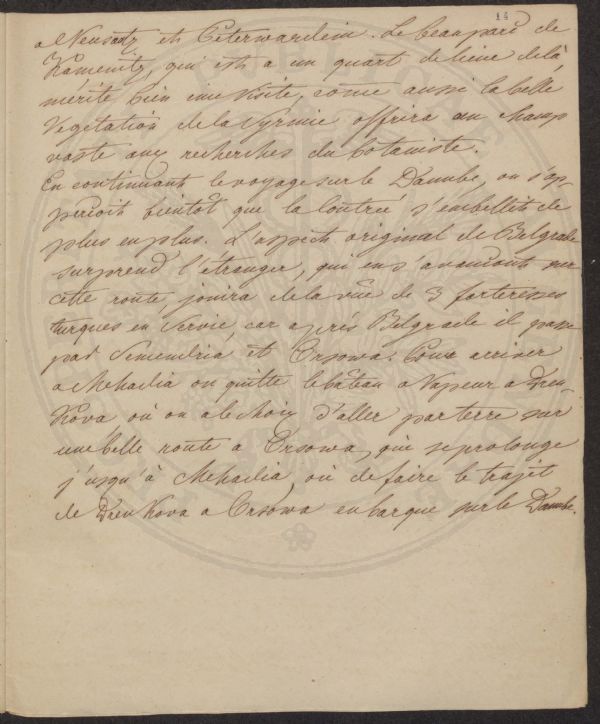 14
a Neusatz et Péterwardein. Le beau parc de
Kamenitz, qui est a un quart de lieue de là,
mérite bien une visite, come aussi la belle
Vegetation de la Syrmie offrira un champ
vaste aux recherches du botaniste.
En continuant le voyage sur le Danube, on s'ap-
perçoit bientôt que la contrée s'embellit de
plus en plus. L'aspect original de Belgrade
surprend l'étranger, qui en s'avançant sur
cette route jouira de la vue de 3 forteresses
turques en Servie, car après Belgrade il passe
par Semendria et Orsowa. Pour arriver
a Mehadia on quitte le bâteau a Vapeur a Dren-
Kova où on a le choix d'aller par terre sur
une belle route a Orsowa, qui se prolonge
j'usqu'à Mehadia, où de faire le trajet
de Dren Kova a Orsowa en barque sur le Danube.